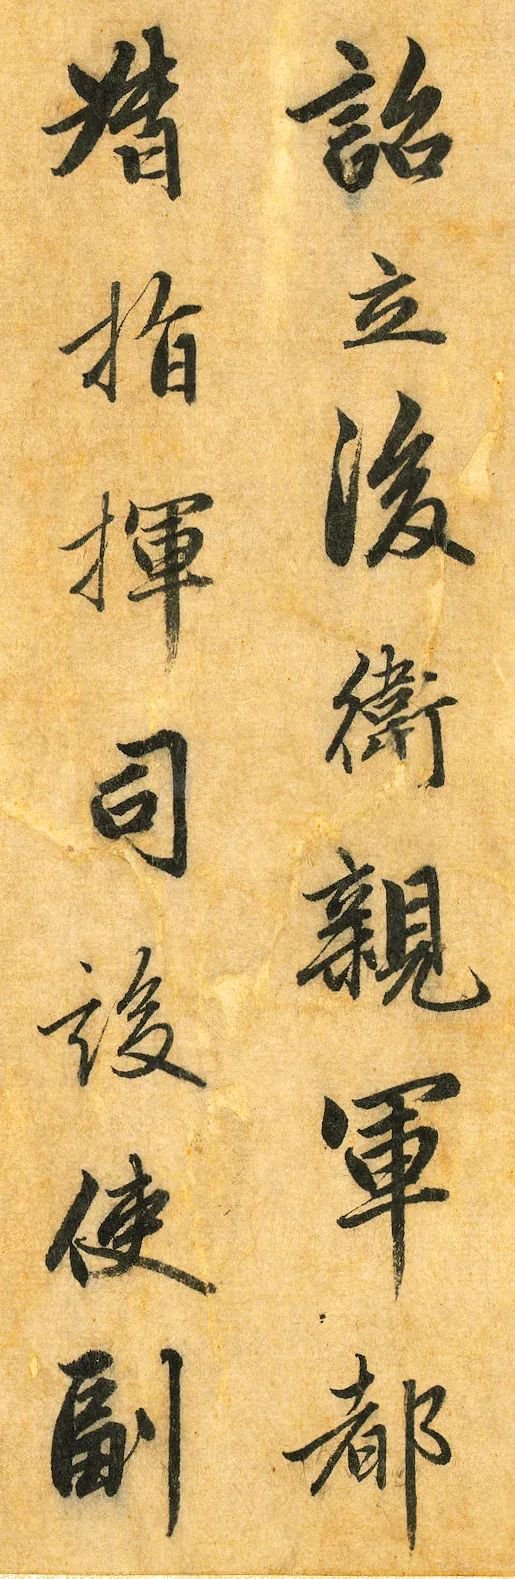 詔立後衛親軍都
揩指揮司設使副